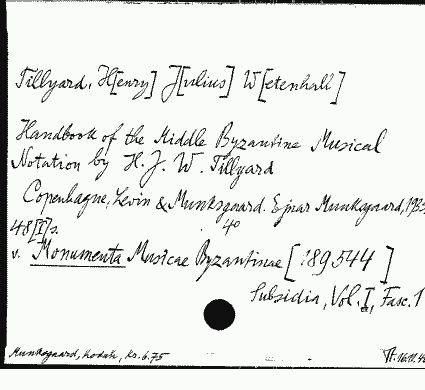 Tillyard, H[enry] J[ulius] W[etenhall]
Handbook of the Middle Byzantine Musical
Notation by H. J. W. Tillyard
Copenhague, Levin & Munksgaard. Ejnar Munksgaard, 1935
48[I]s. 4o
v. Monumenta Musicae Byzantinae [189544]
Subsidia, Vol. I, Fasc. 1
Munksgaard, Kodaň, Kr. 6.75